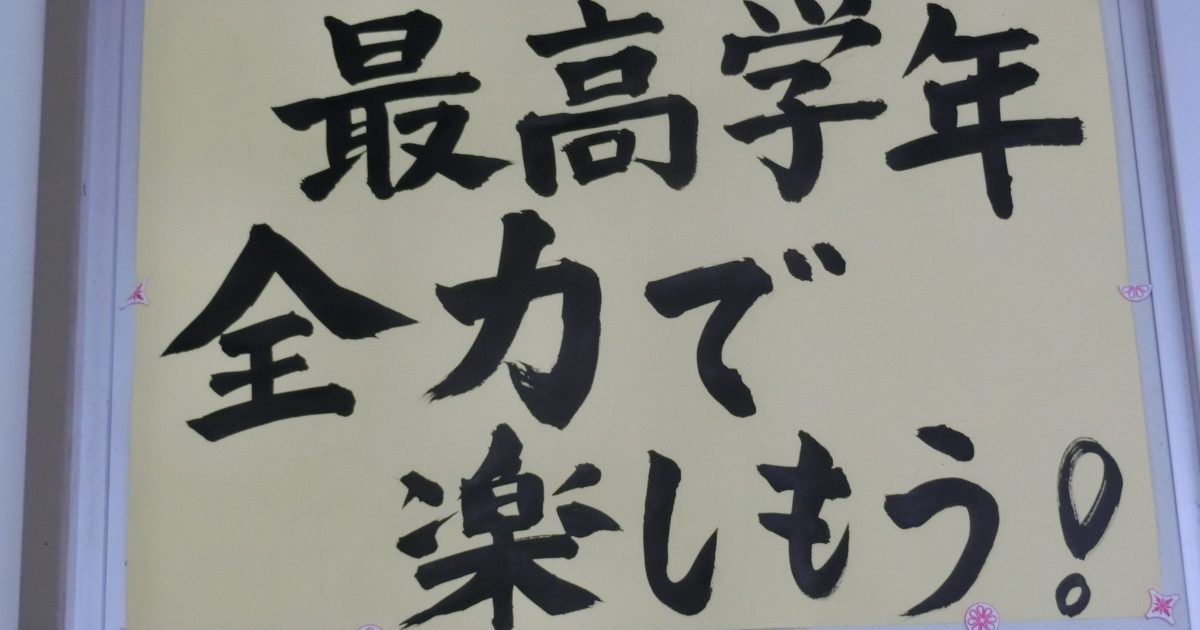 最高学年
全力で
楽しもう!